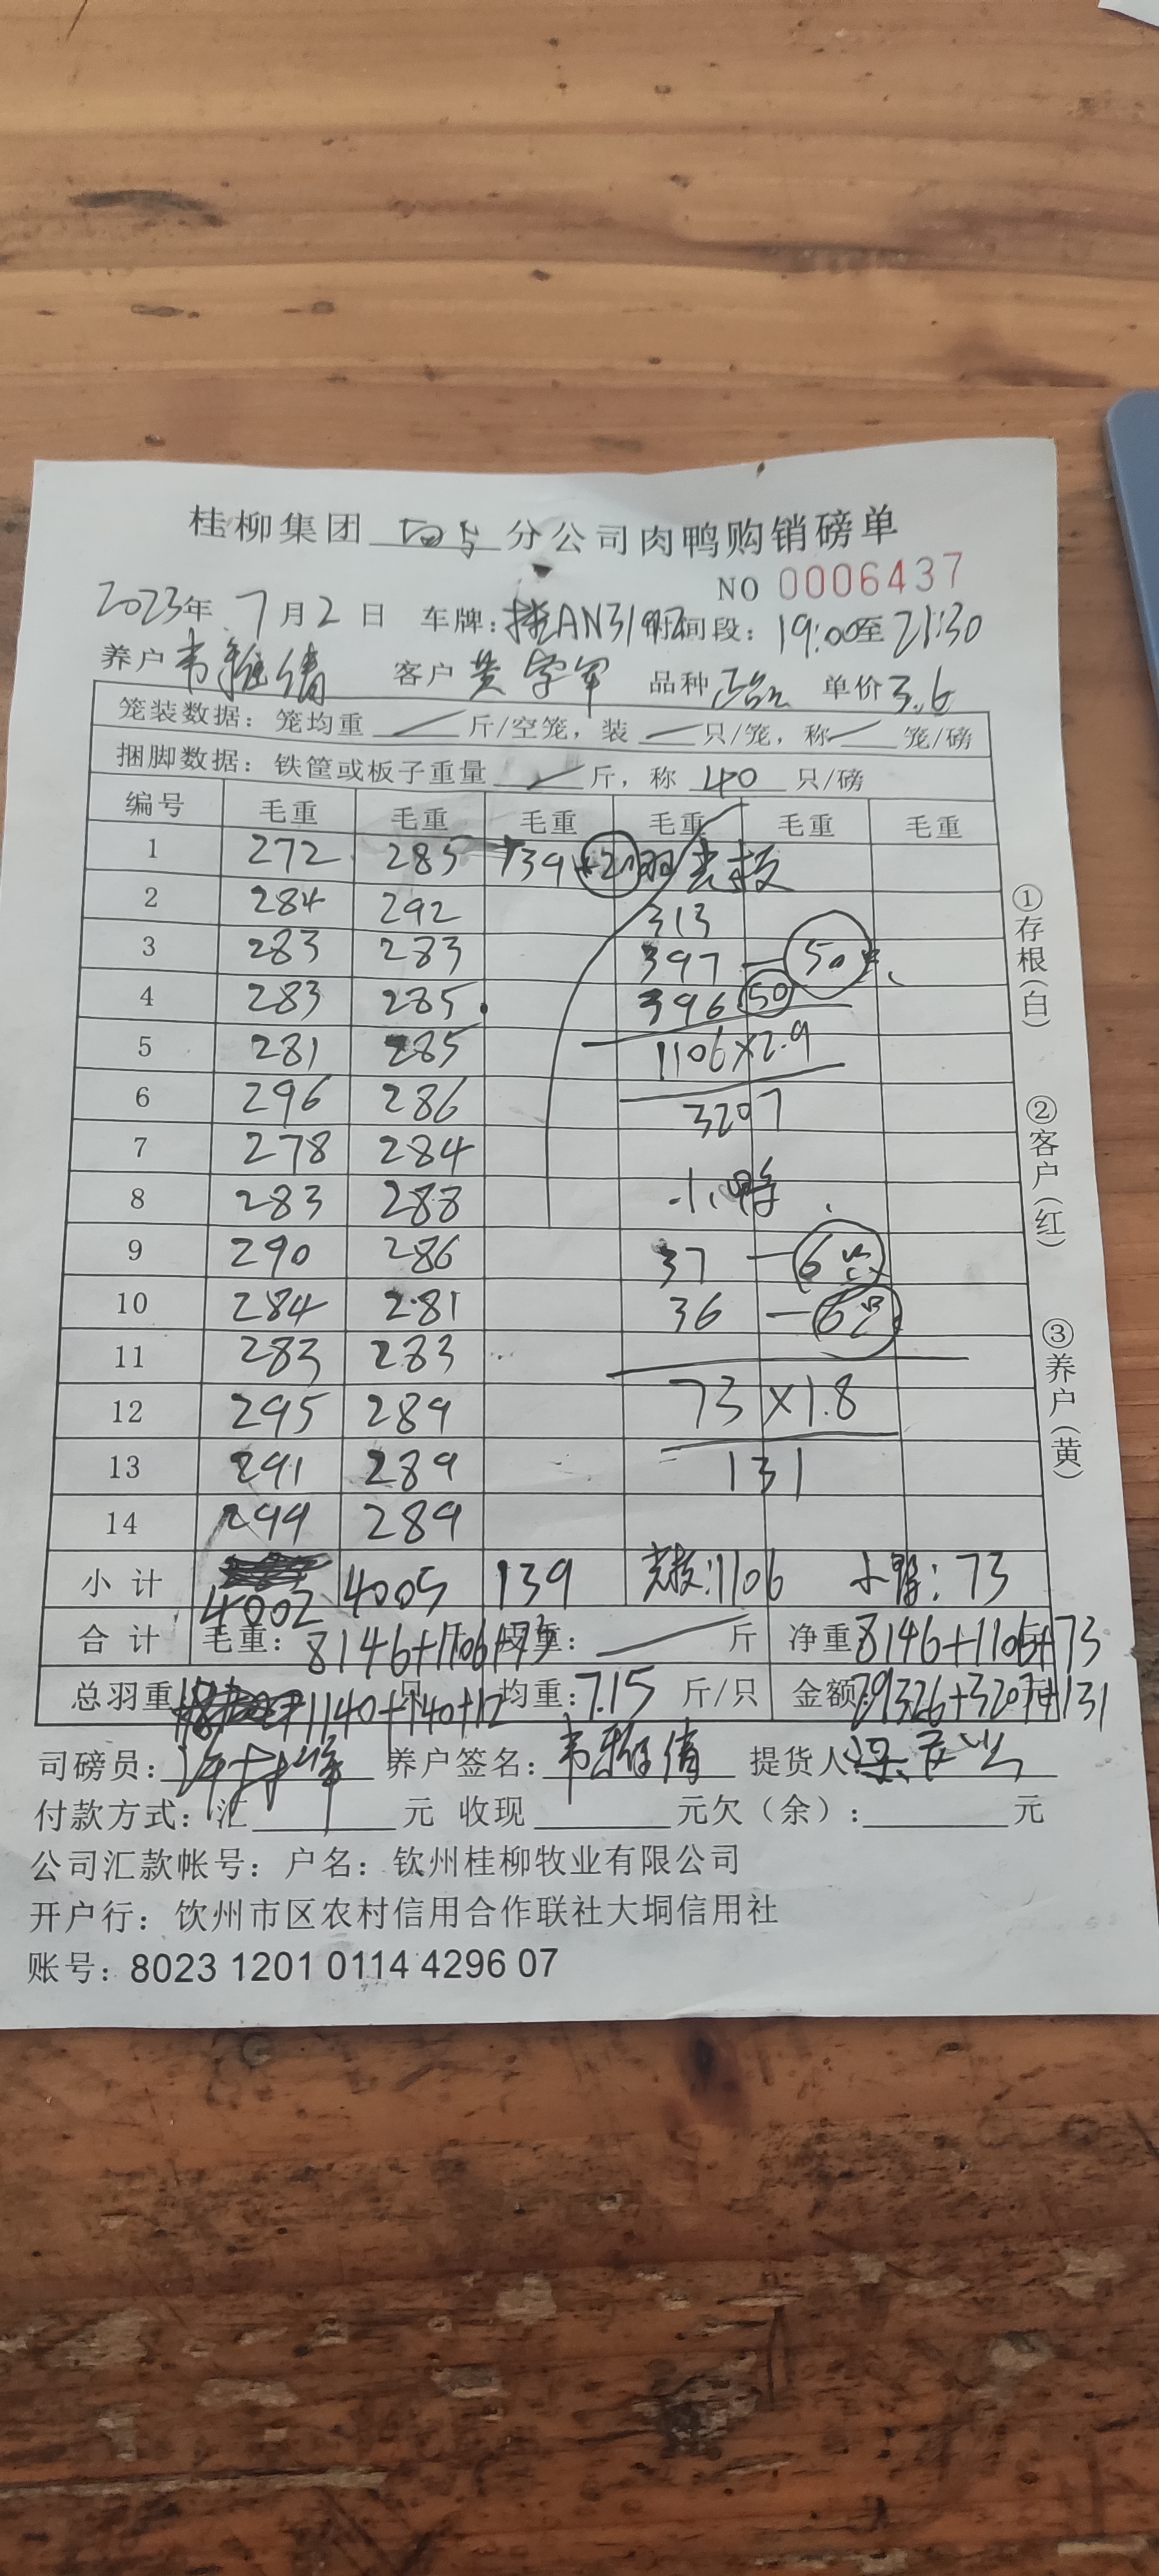 桂柳集团 分公司肉鸭购销磅单
NO 0006437
2023年 7月2日 车牌: 时间段: 19:00至21:30
养户 韦雅倩 客户 黄字军 品种 正品 单价 3.6
笼装数据: 笼均重 斤/空笼, 装 只/笼, 称 笼/磅
捆脚数据: 铁筐或板子重量 斤, 称 40 只/磅
编号 毛重 毛重 毛重 毛重 毛重 毛重
1 272 285 139 20羽
2 284 292 313
3 283 283 397 — 50只
4 283 285 396 50
5 281 285 1106×2.9
6 296 286 3207
7 278 284
8 283 288 小鸭
9 290 286 37 — 6只
10 284 281 36 — 6只
11 283 283
12 295 289 73×1.8
13 291 289 131
14 299 289
小计 4002 4005 139 1106 小鸭: 73
合计 毛重: 8146+1106+73 皮重: 斤 净重 8146+1106+73
总羽重 1140+140+12 只 均重: 7.15 斤/只 金额 29326+3207+131
司磅员: 养户签名: 韦雅倩 提货人
付款方式: 汇 元 收现 元欠(余): 元
公司汇款帐号: 户名: 钦州桂柳牧业有限公司
开户行: 饮州市区农村信用合作联社大垌信用社
账号: 8023 1201 0114 4296 07
①存根(白)
②客户(红)
③养户(黄)